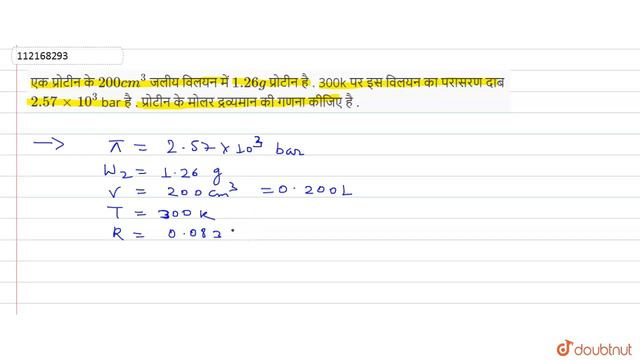 112168293
एक प्रोटीन के 200cm³ जलीय विलयन में 1.26g प्रोटीन है . 300k पर इस विलयन का परासरण दाब
2.57 × 10³ bar है . प्रोटीन के मोलर द्रव्यमान की गणना कीजिए है .
→ π = 2.57 × 10³ bar
W₂ = 1.26 g
V = 200 cm³ = 0.200L
T = 300 K
R = 0.083
doubtnut